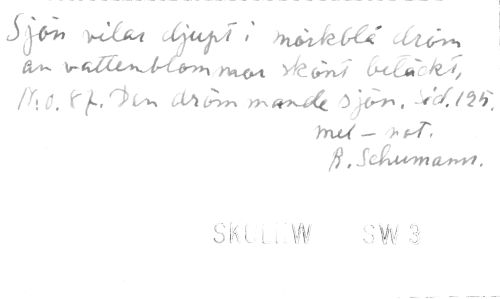 Sjön vilar djupt i mörkblå dröm
av vattenblommor skönt betäckt,
N:o. 87. Den drömmande sjön. Sid. 125.
mel-not.
R. Schumann.
SW 3